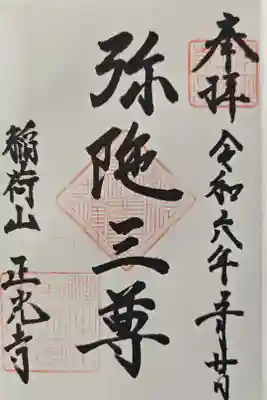 奉拝
令和六年二月廿日
弥陀三尊
稲荷山 正光寺